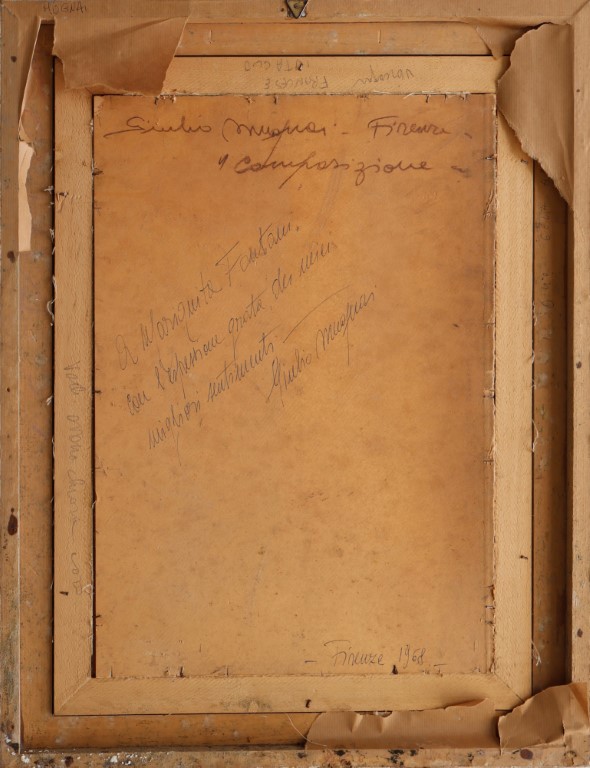 MOGNAI
FRANCESE
Giulio Mugnai - Firenze -
"Composizione -
A Margherita Fontani
con l'espressione grata dei miei
migliori sentimenti. -
Giulio Mugnai
- Firenze 1968 -